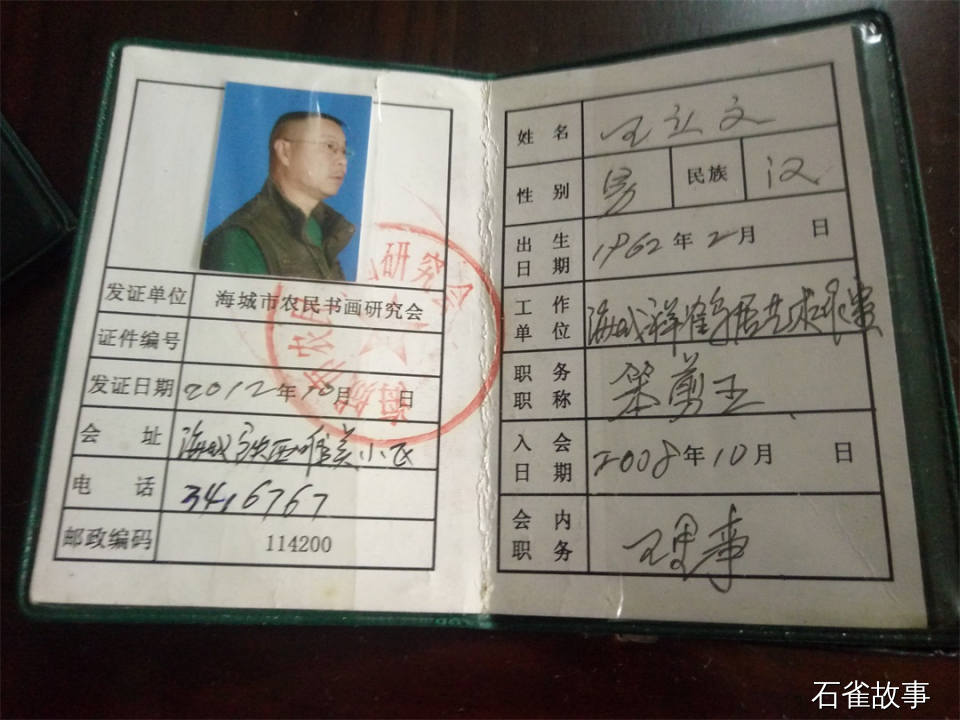 发证单位 海城市农民书画研究会
证件编号
发证日期 2012年10月 日
会 址 海城铁西唯美小区
电 话 3416767
邮政编码 114200
海城市农民书画研究会
姓 名 王立文
性 别 男 民族 汉
出 生 日 期 1962年2月 日
工 作 单 位 海城祥雀
职 务 职 称 笨剪王
入 会 日 期 2008年10月 日
会 内 职 务 理事
石雀故事